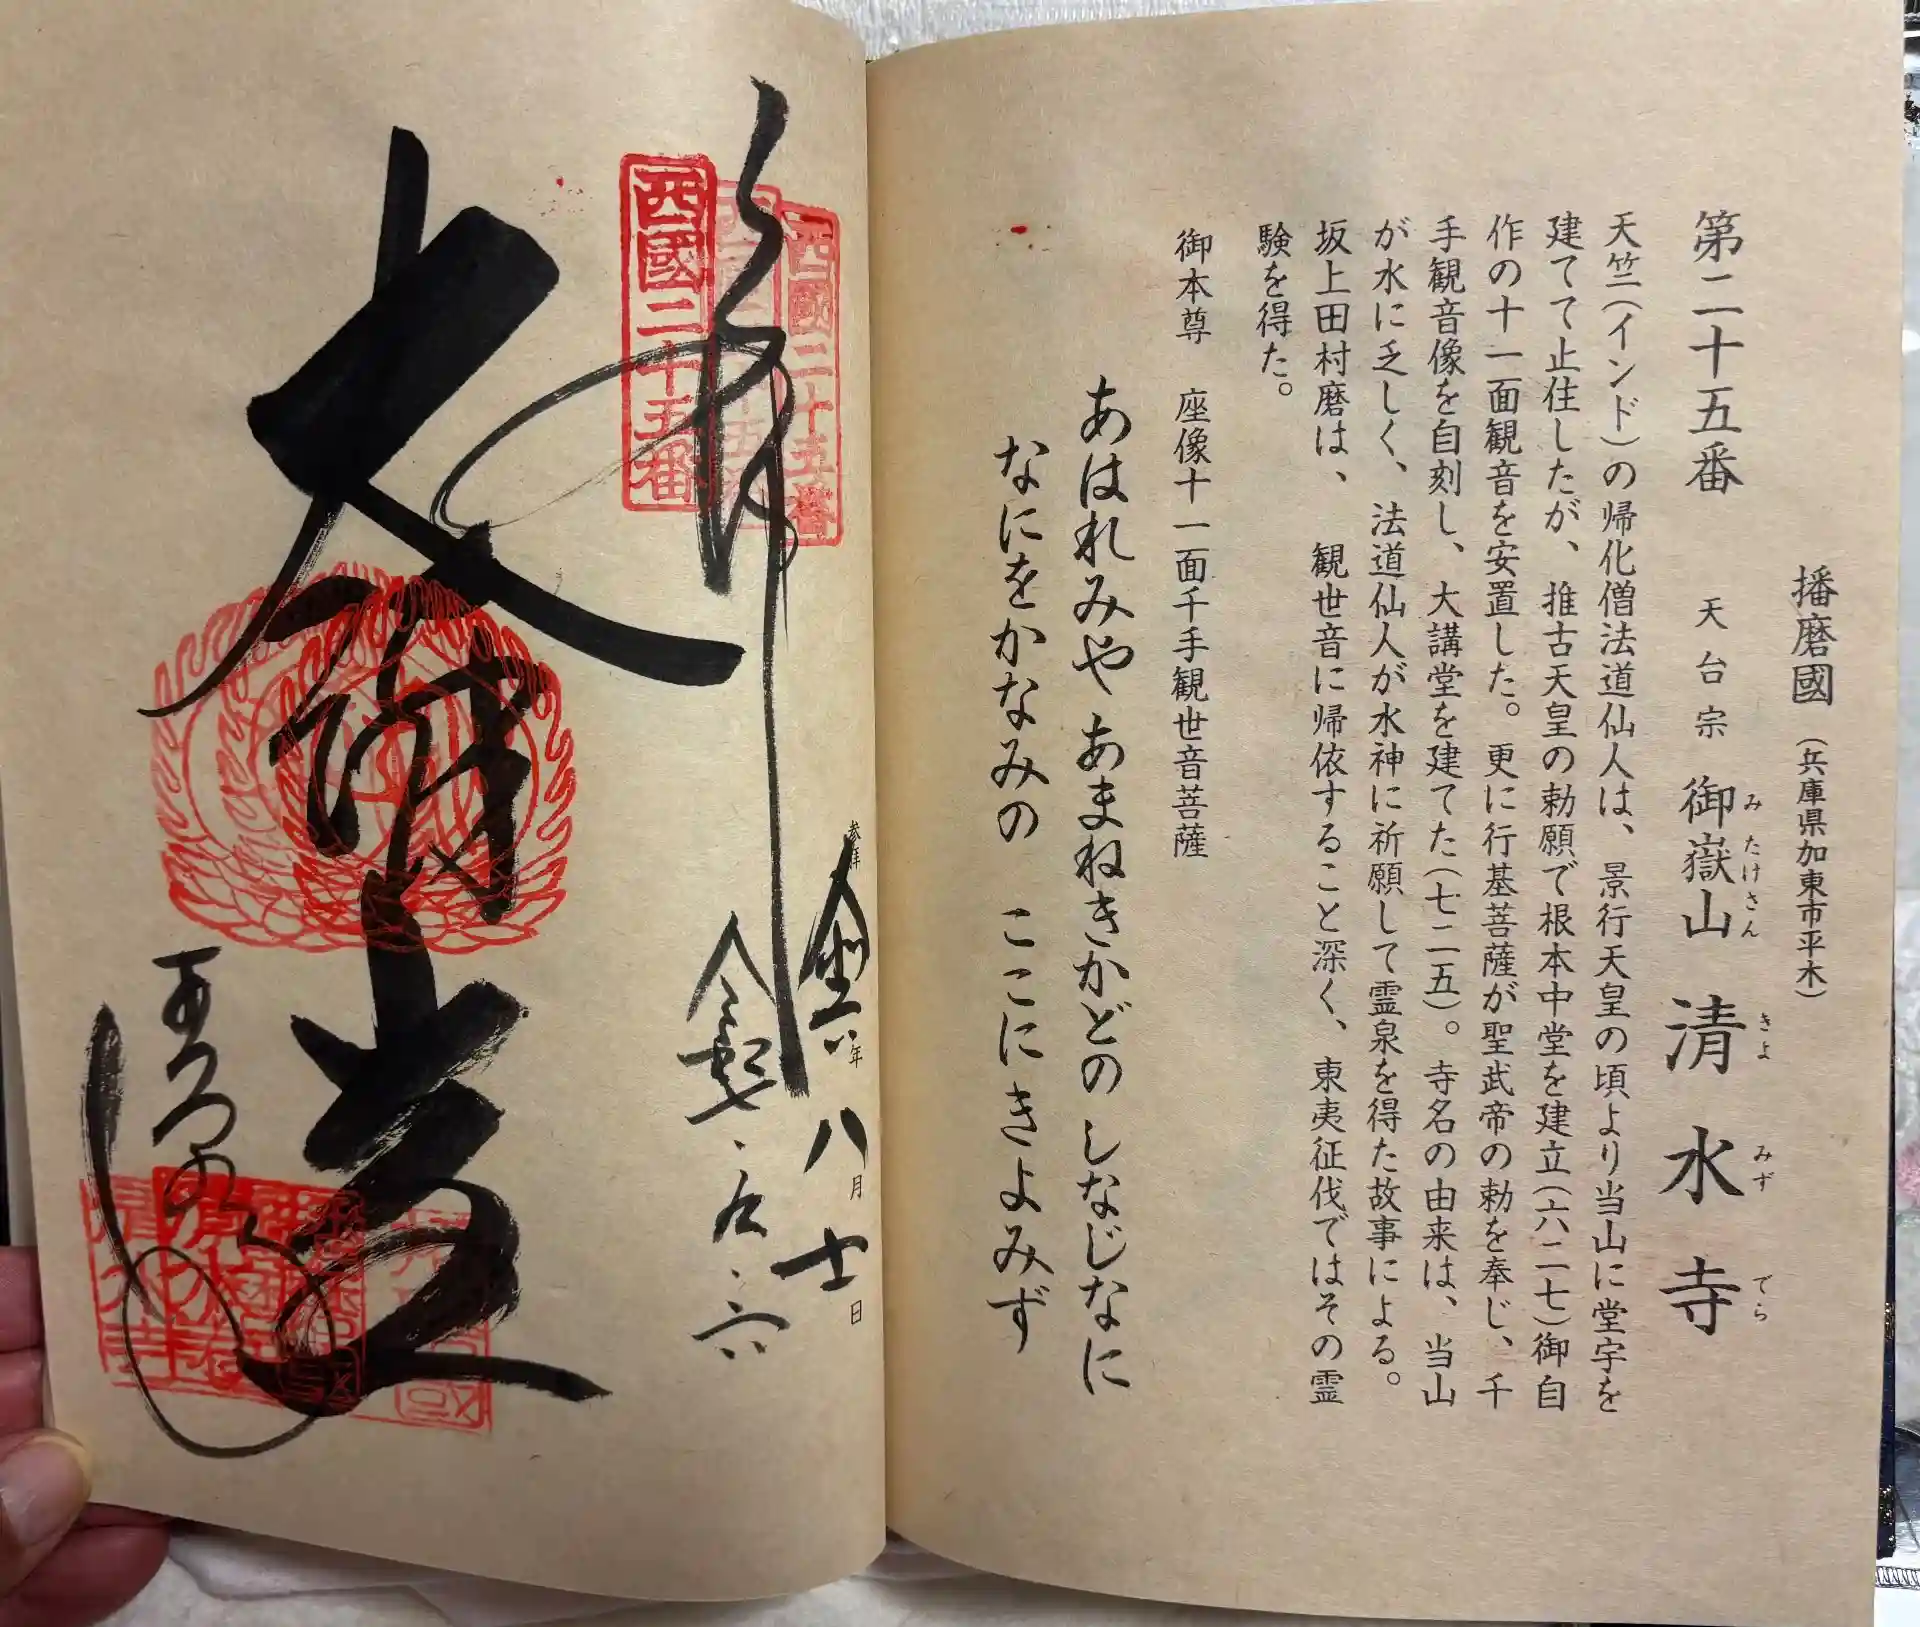 播磨國（兵庫県加東市平木）
第二十五番 天台宗 御嶽山 清水寺
みたけさん きよみずでら
天竺（インド）の帰化僧法道仙人は、景行天皇の頃より当山に堂宇を
建てて止住したが、推古天皇の勅願で根本中堂を建立（六二七）御自
作の十一面観音を安置した。更に行基菩薩が聖武帝の勅を奉じ、千
手観音像を自刻し、大講堂を建てた（七二五）。寺名の由来は、当山
が水に乏しく、法道仙人が水神に祈願して霊泉を得た故事による。
坂上田村磨は、観世音に帰依すること深く、東夷征伐ではその霊
験を得た。
御本尊 座像十一面千手観世音菩薩
あはれみや あまねきかどの しなじなに
なにをかなみの ここにきよみず
参拝 年 八月 日
奉拝
西國二十五番
西國二十五番
大悲